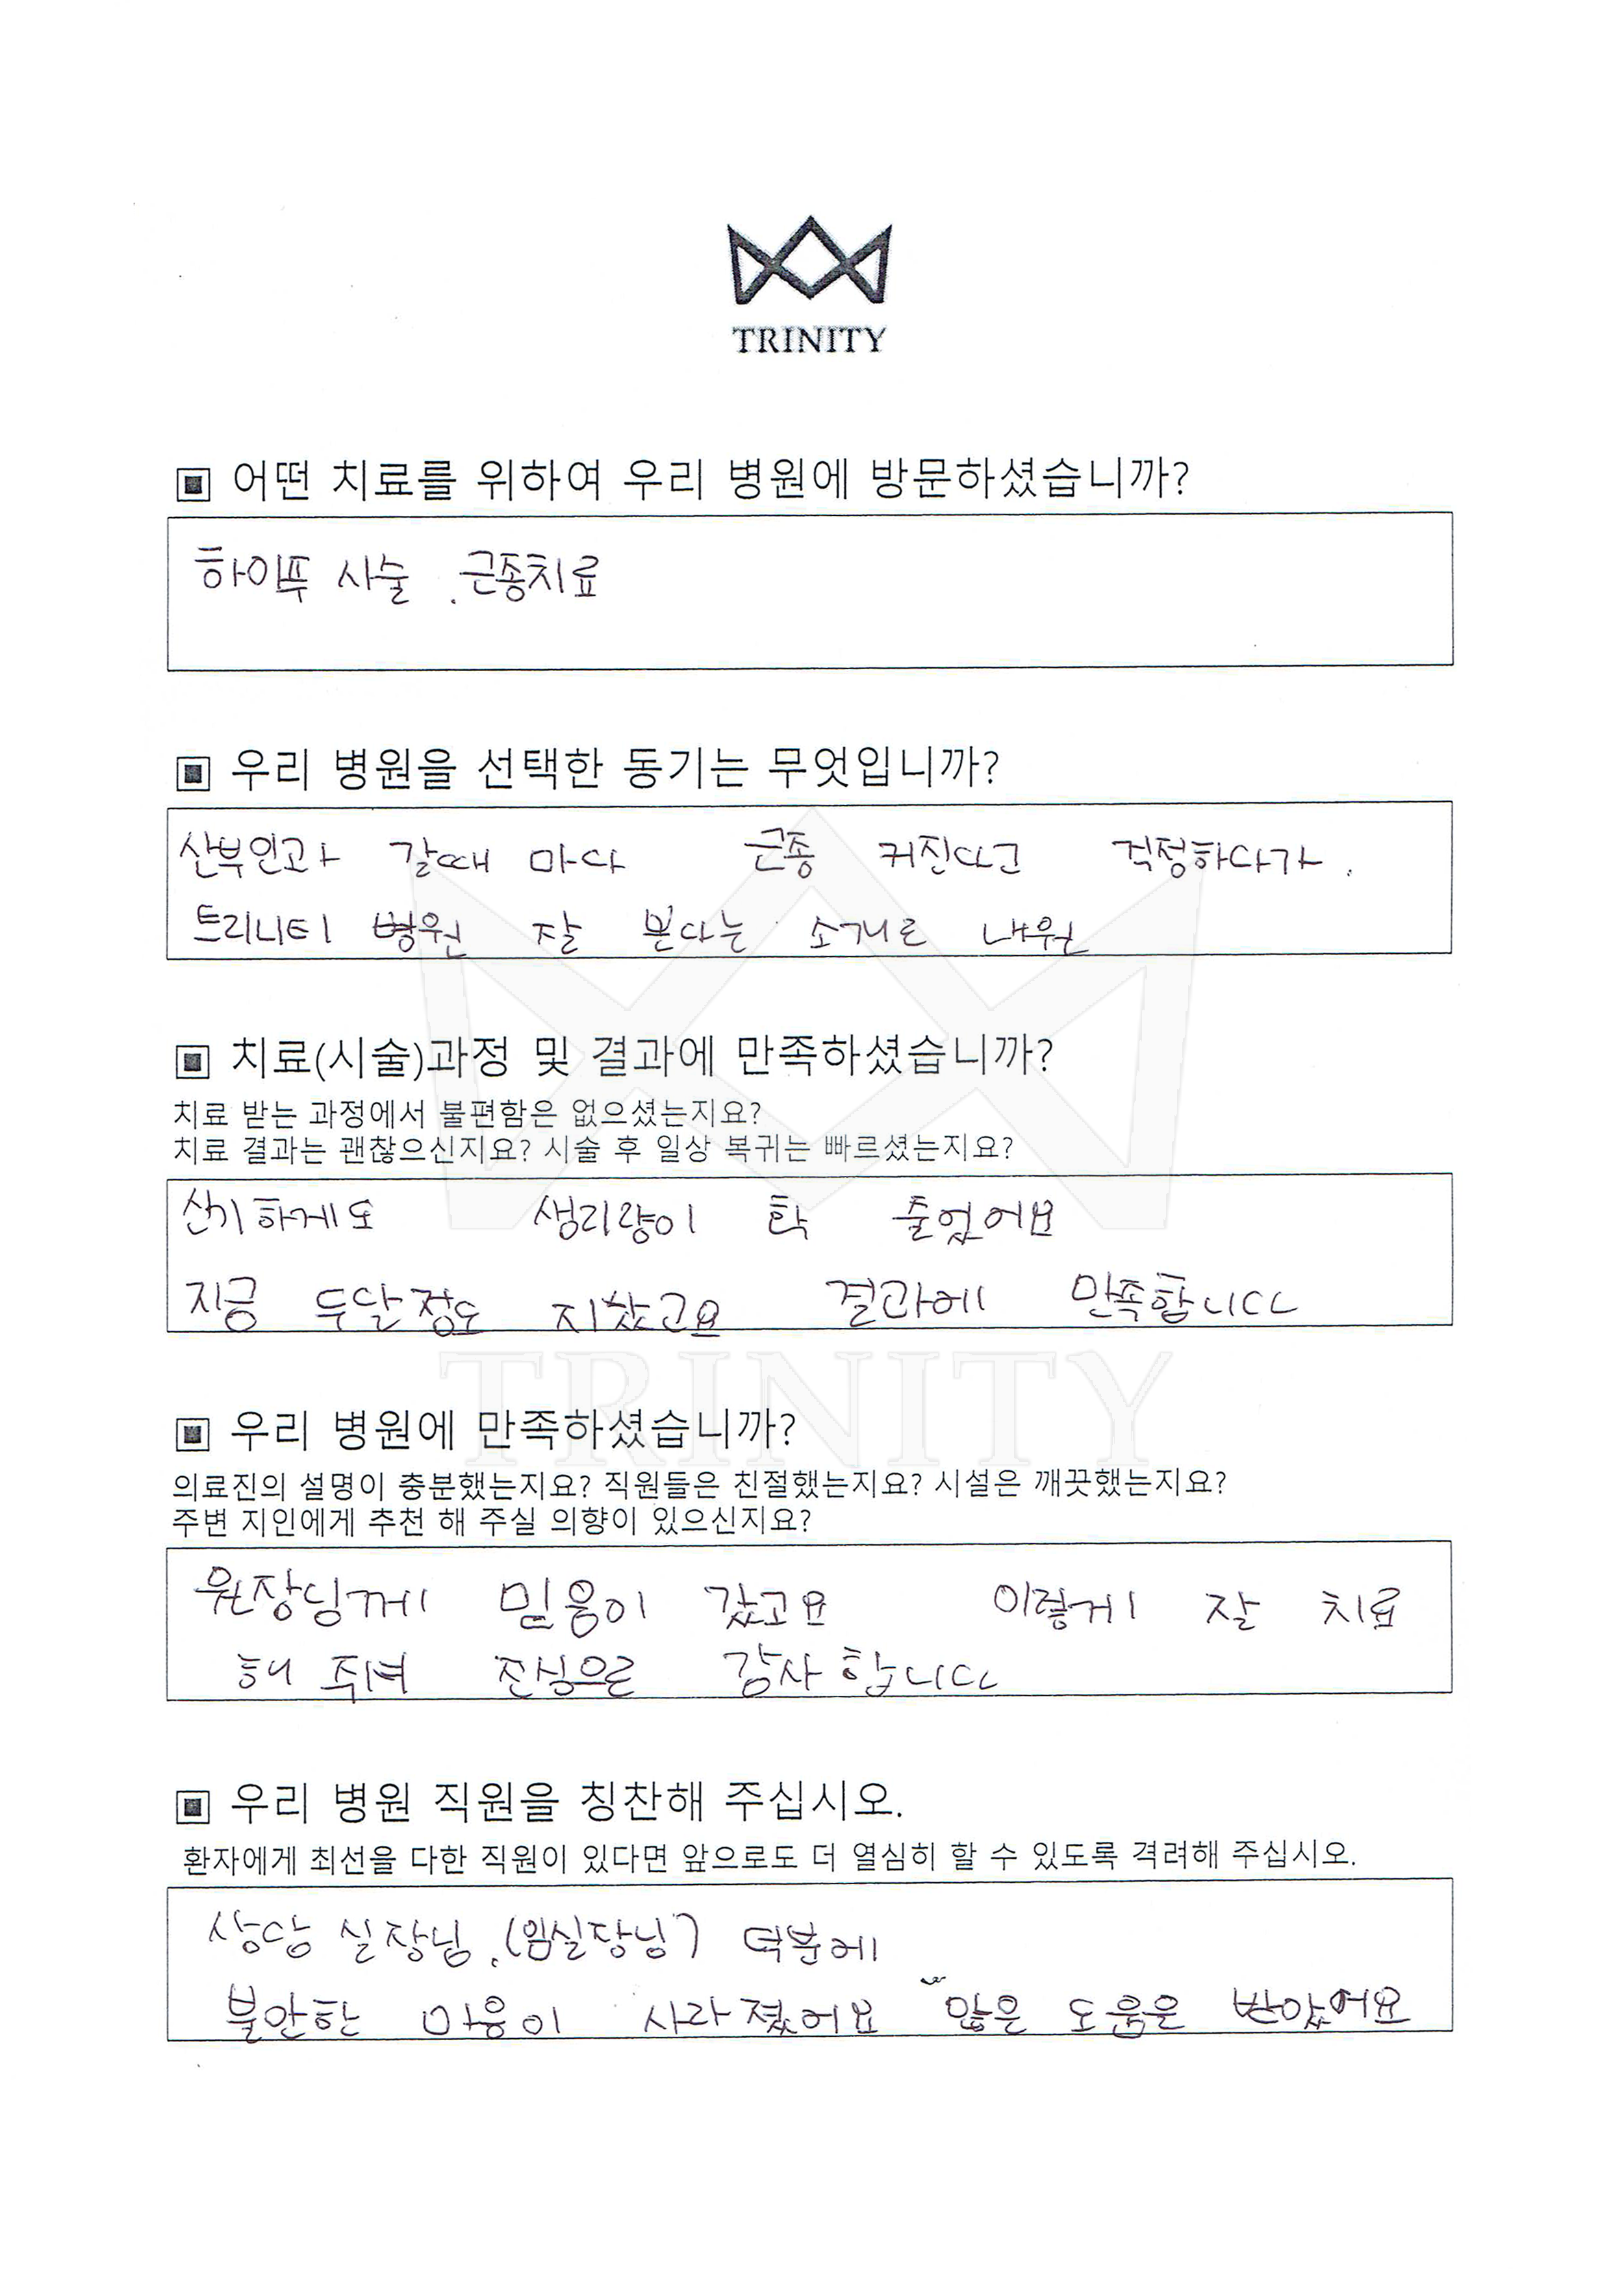 TRINITY
▣ 어떤 치료를 위하여 우리 병원에 방문하셨습니까?
하이푸 시술 . 근종치료
▣ 우리 병원을 선택한 동기는 무엇입니까?
산부인과 갈때 마다 근종 커진다고 걱정하다가 .
트리니티 병원 잘 본다는 소개로 내원
▣ 치료(시술)과정 및 결과에 만족하셨습니까?
치료 받는 과정에서 불편함은 없으셨는지요?
치료 결과는 괜찮으신지요? 시술 후 일상 복귀는 빠르셨는지요?
신기하게도 생리량이 확 줄었어요
지금 두달정도 지났고요 결과에 만족합니다
TRINITY
▣ 우리 병원에 만족하셨습니까?
의료진의 설명이 충분했는지요? 직원들은 친절했는지요? 시설은 깨끗했는지요?
주변 지인에게 추천 해 주실 의향이 있으신지요?
원장님께 믿음이 갔고요 이렇게 잘 치료
해 주셔 진심으로 감사합니다
▣ 우리 병원 직원을 칭찬해 주십시오.
환자에게 최선을 다한 직원이 있다면 앞으로도 더 열심히 할 수 있도록 격려해 주십시오.
상담 실장님 . (임실장님) 덕분에
불안한 마음이 사라졌어요 많은 도움을 받았어요